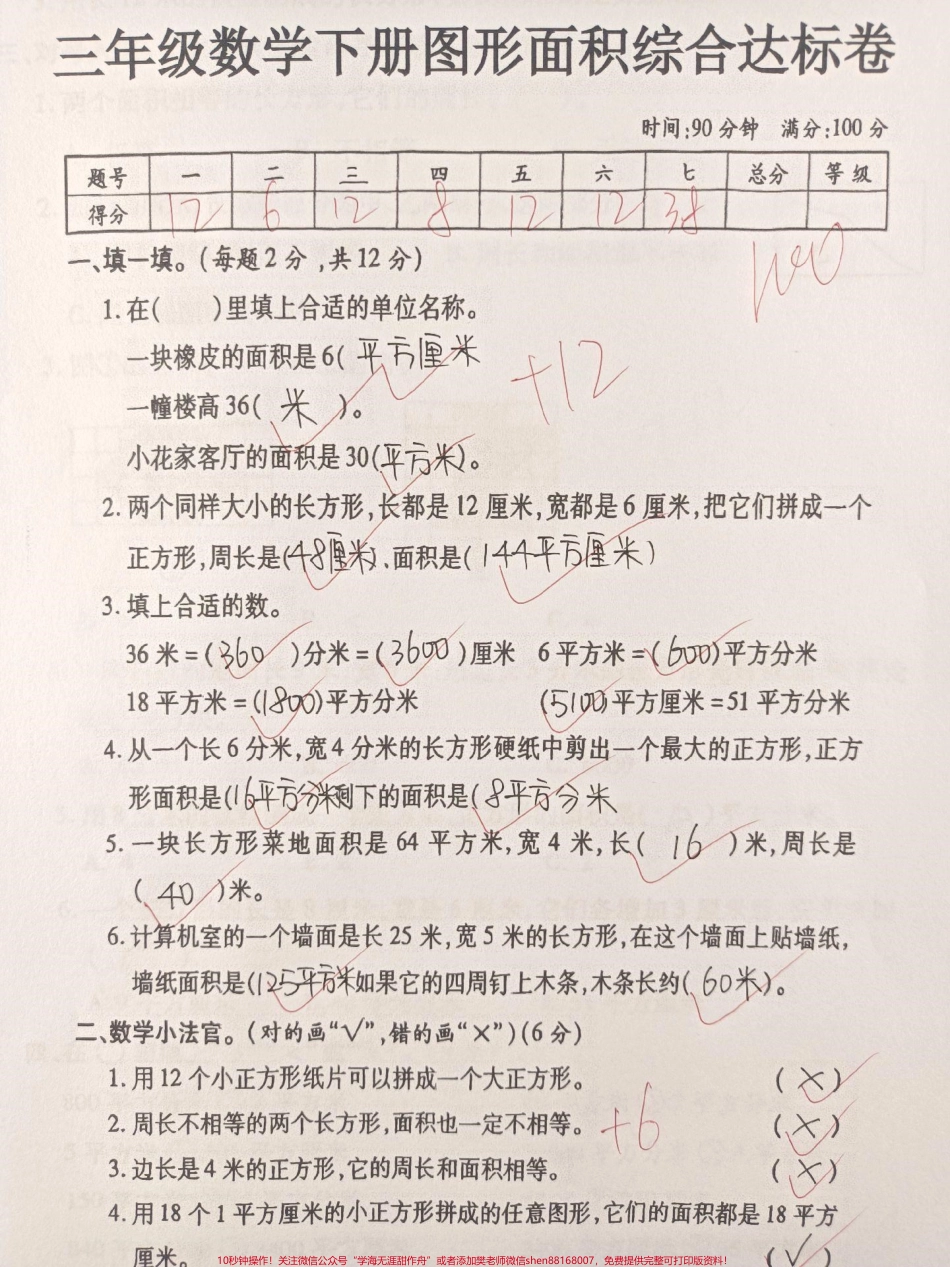 三年级数学下册图形面积综合达标卷
时间:90分钟 满分:100分
题号 一 二 三 四 五 六 七 总分 等级
得分 12 6 12 8 12 12 38
100
一、填一填。(每题2分,共12分)
1.在( )里填上合适的单位名称。
一块橡皮的面积是6(平方厘米
+12
一幢楼高36( 米 )。
小花家客厅的面积是30(平方米)。
2.两个同样大小的长方形,长都是12厘米,宽都是6厘米,把它们拼成一个
正方形,周长是(48厘米)、面积是(144平方厘米)
3.填上合适的数。
36米=(360)分米=(3600)厘米 6平方米=(600)平方分米
18平方米=(1800)平方分米 (5100)平方厘米=51平方分米
4.从一个长6分米,宽4分米的长方形硬纸中剪出一个最大的正方形,正方
形面积是(16平方分米剩下的面积是(8平方分米
5.一块长方形菜地面积是64平方米,宽4米,长( 16 )米,周长是
( 40 )米。
6.计算机室的一个墙面是长25米,宽5米的长方形,在这个墙面上贴墙纸,
墙纸面积是(125平方米如果它的四周钉上木条,木条长约(60米)。
二、数学小法官。(对的画“√”,错的画“×”)(6分)
1.用12个小正方形纸片可以拼成一个大正方形。 (×)
2.周长不相等的两个长方形,面积也一定不相等。 +6 (×)
3.边长是4米的正方形,它的周长和面积相等。 (×)
4.用18个1平方厘米的小正方形拼成的任意图形,它们的面积都是18平方
厘米。 (√)
10秒钟操作!关注微信公众号“学海无涯甜作舟”或者添加樊老师微信shen88168007,免费提供完整可打印版资料!